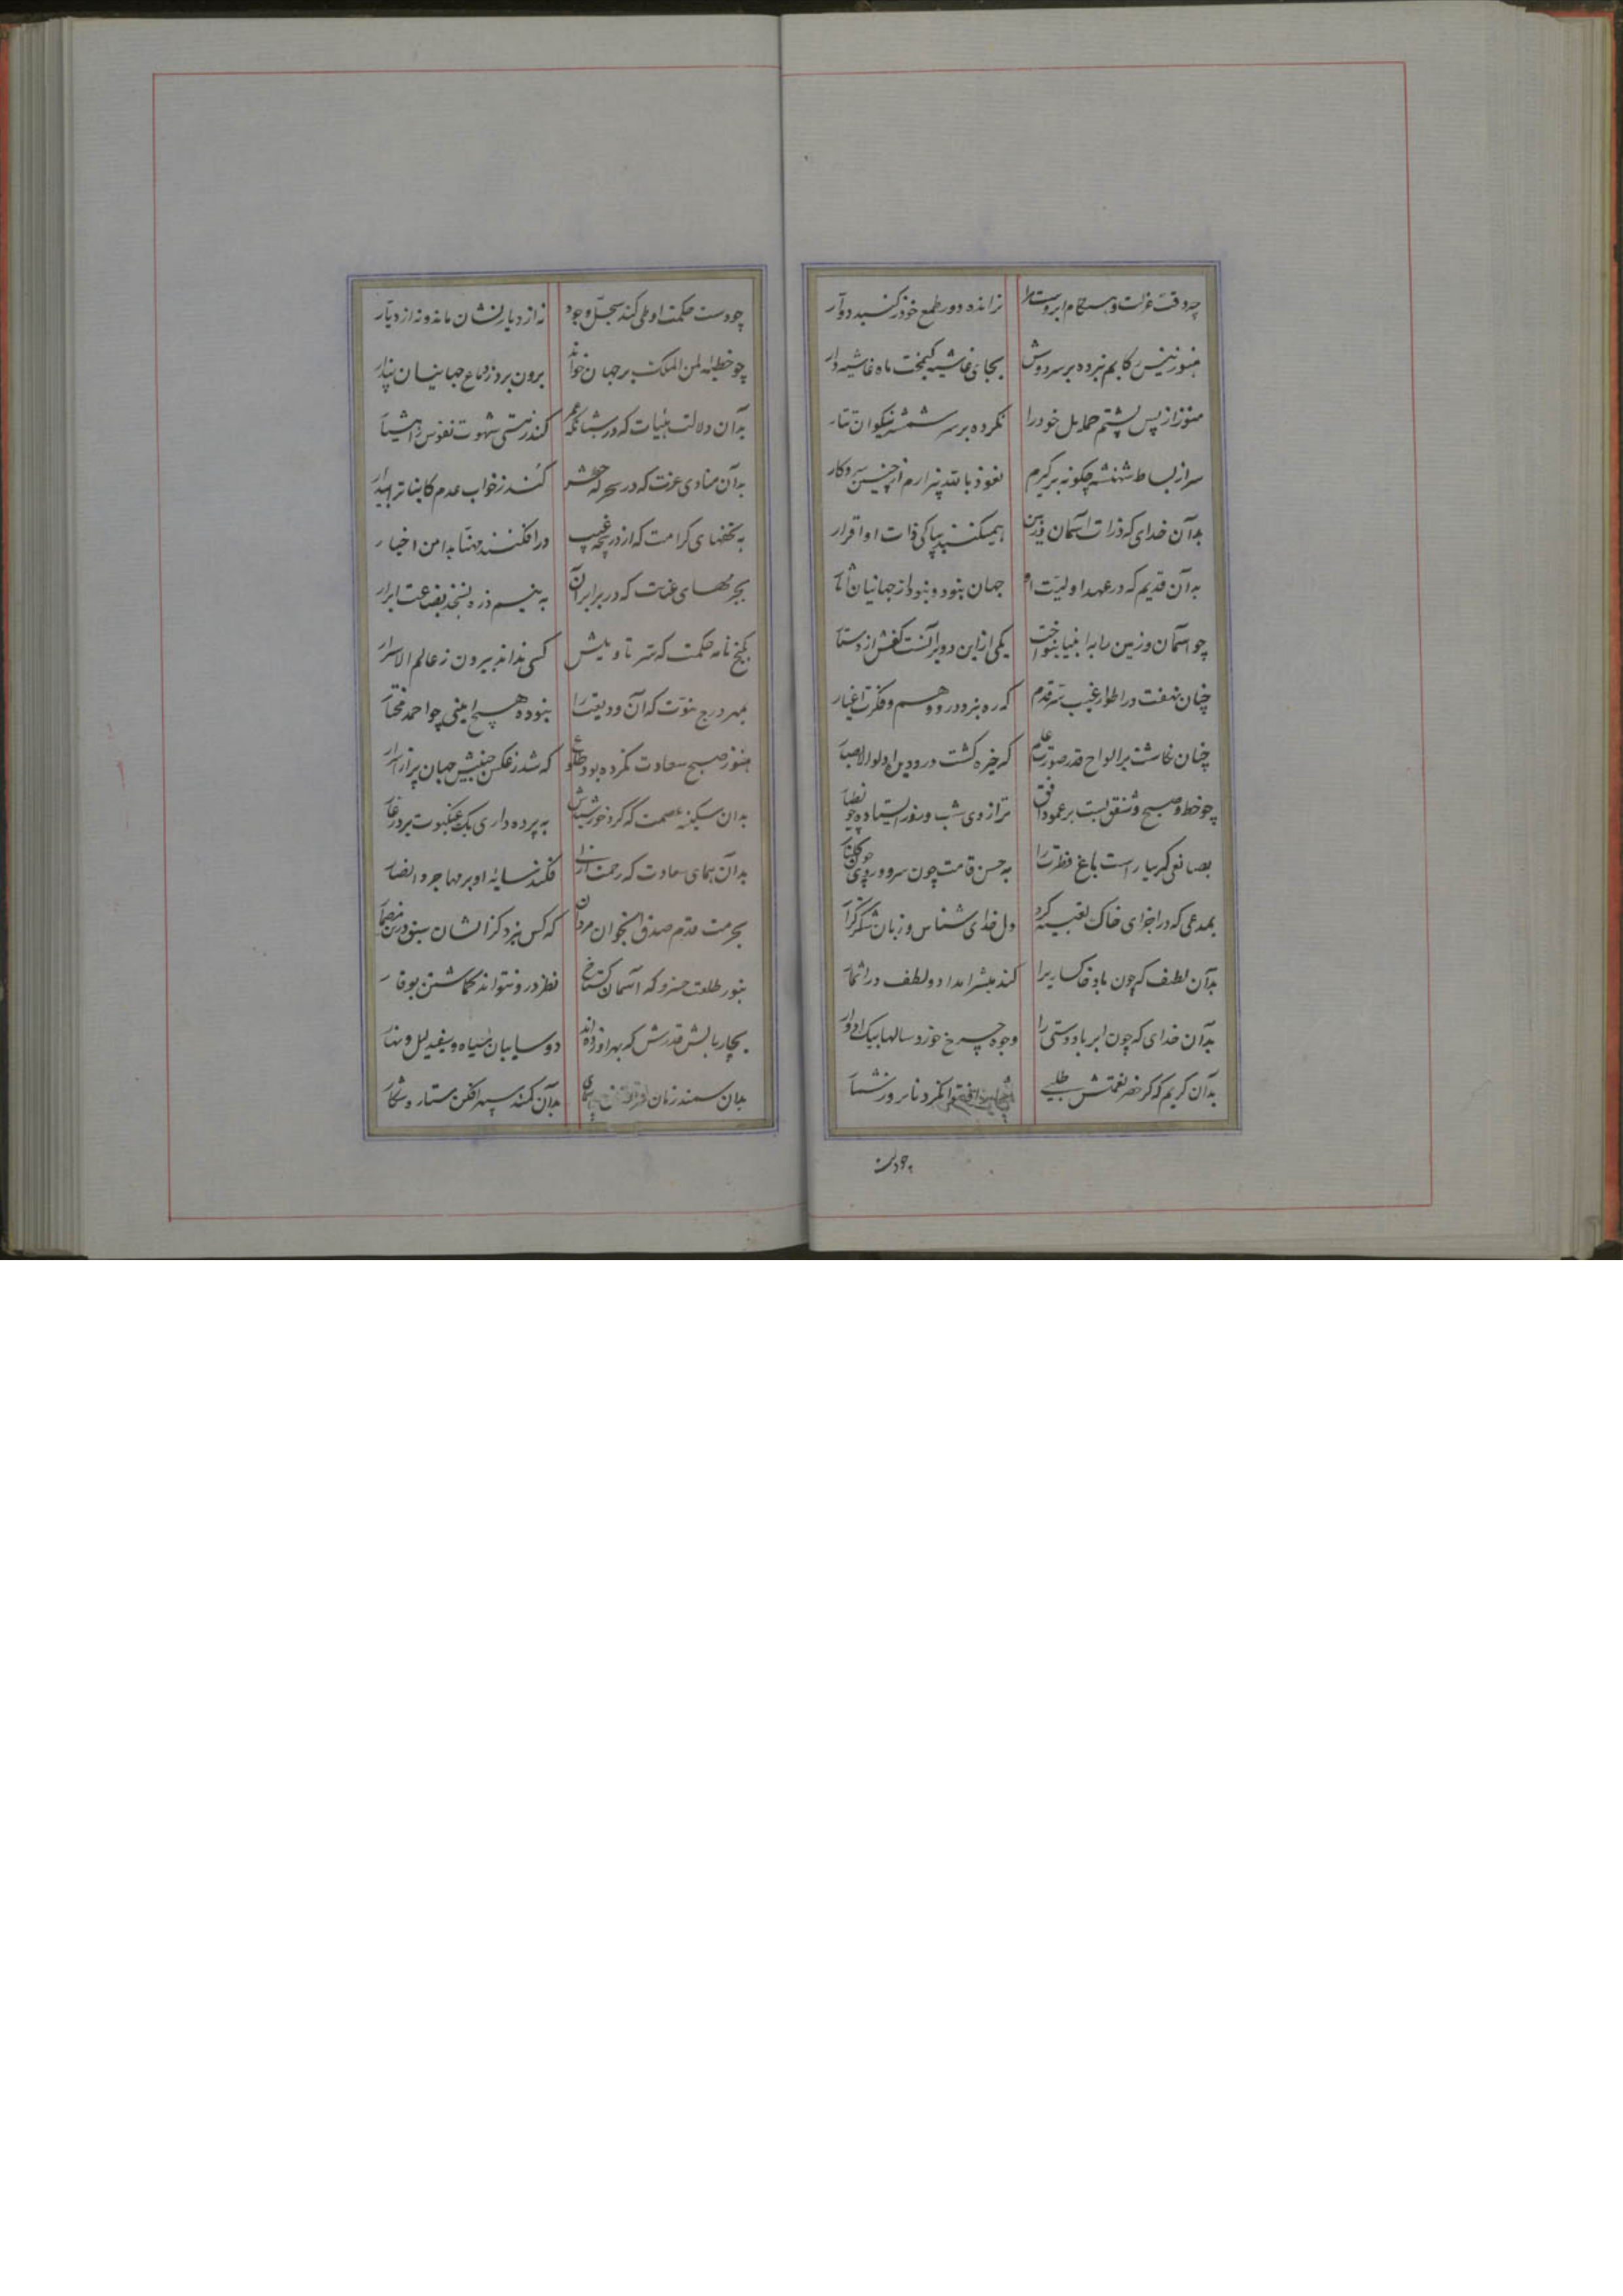 چه وقت عزلت و هنگام ابروست مرا نرانده دور طمع خود ز گنبد دوار
هنوز نفس کابم نبرده بر سر دوش بجای غاشیه کیمخت ماه غاشیه دار
هنوز از پس پشتم حمایل خود را نکرده بر سر شمشیر نیکوان تتار
سر از بساط شهنشه چگونه برگیرم نعوذ بالله بیزارم از چنین سر و کار
بدآن خدای که ذرات آسمان و زمین همیکنند بپاکی ذات او اقرار
به آن قدیم که در عهد اولیت او جهان نبود و نبود از جهانیان آثار
چو آسمان و زمین را به انبیا بنواخت یکی ازین دو برآنست کفش از دستار
چنان نهفت در اطوار غیب سر قدم که ره نبرد در و وهم و فکرت اغیار
چنان نگاشت بر الواح قدر صورت علم که خیره گشت در و دیده اولوالابصار
چو خط و صبح و شفق بست بر عمود افق ترازوی شب و روز ایستاده چو نصار
بصانعی که بیاراست باغ فطرت را به حسن قامت چون سرو و روی چون گلنار
بمبدعی که در اجزای خاک تعبیه کرد دل خدای شناس و زبان شکرگزار
بدآن لطف که چون باد و خاک را کند مبشر امداد و لطف در اثمار
بدآن خدای که چون ابر باد دستی را وجوه چرخ خورد سالها بیک ادوار
بدآن کریم که کر خضر نعمتش طلبی نکرد تا بروز شمار
چو دست
چو دست حکمت او طی کند سجل وجود نه از دیار نشان ماند و نه از دیار
چو خطبهٔ لمن الملک بر جهان خواند برون برد ز دماغ جهانیان پندار
بدآن دلالت هیأت که در شبانگه عمر کند ز مستی شهوت نفوس را هشیار
بدآن منادی عزت که در سحرگه حشر کند ز خواب عدم کاینات را بیدار
به تحفهای کرامت که از دریچه غیب درافکنند مهیا بدامن اخیار
بجرمهای عنایت که در برابر آن به نیم ذره نسنجد بضاعت ابرار
بگنج نامه حکمت که سر تاویلش کسی نداند بیرون ز عالم الاسرار
بمهر درج نبوت که آن ودیعت را نبوده هیچ امینی چو احمد مختار
هنوز صبح سعادت نکرده بود طلوع که شد ز عکس جبینش جهان پر از اسرار
بدان سکینه عصمت که گرد خورشیدش به پرده داری یک عنکبوت بر در غار
بدآن همای سعادت که رحمت ازلی فکند سایهٔ او بر مهاجر و انصار
بحرمت قدم صدق آنجوان مردان که کس نبرد کز ایشان سبق درین مضمار
بنور طلعت خسرو که آسمان گستاخ نظر در و نتواند گماشتن بوقار
بچار بالش قدرش که بهر او زده‌اند دو سایبان سیاه و سفید لیل و نهار
بدان سمند زمان پیمای بدآن کمند سپهر افکن ستاره شکار